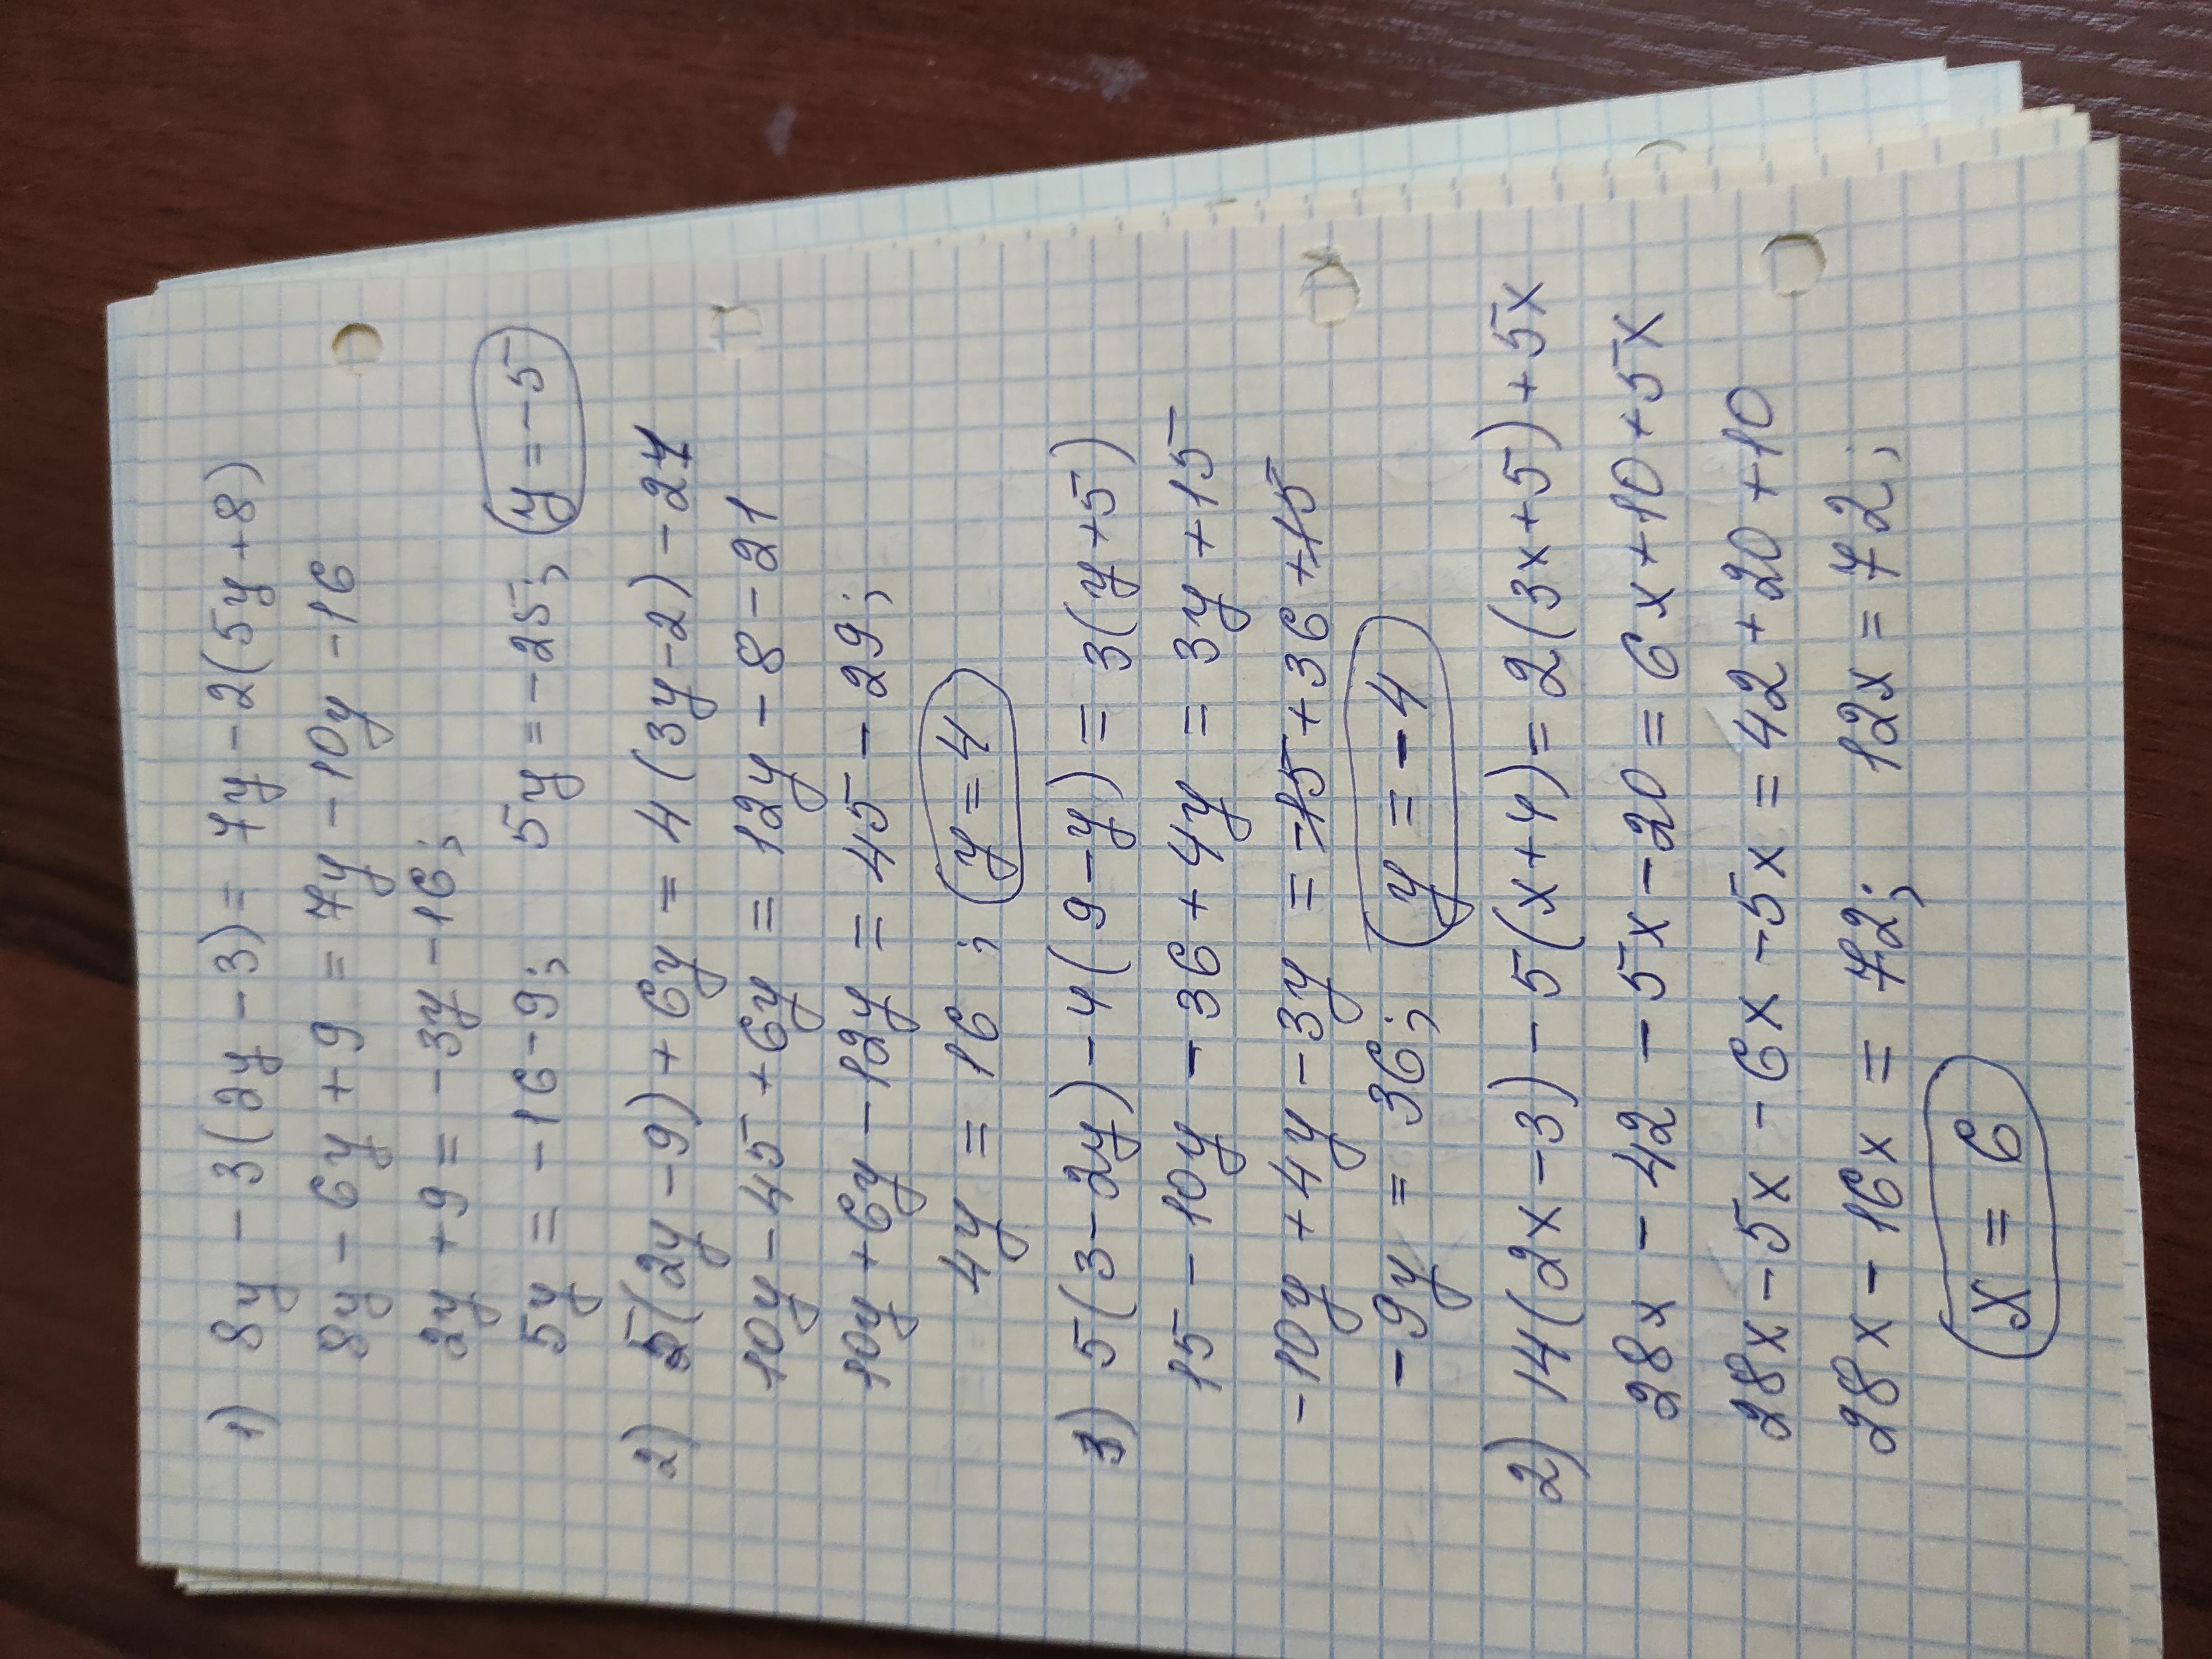 1) 8y - 3(2y - 3) = 7y - 2(5y + 8)
8y - 6y + 9 = 7y - 10y - 16
2y + 9 = -3y - 16;
5y = -16 - 9; 5y = -25; y = -5
2) 5(2y - 9) + 6y = 4(3y - 2) - 21
10y - 45 + 6y = 12y - 8 - 21
10y + 6y - 12y = 45 - 29;
4y = 16; y = 4
3) 5(3 - 2y) - 4(9 - y) = 3(y + 5)
15 - 10y - 36 + 4y = 3y + 15
-10y + 4y - 3y = -15 + 36 + 15
-9y = 36; y = -4
2) 14(2x - 3) - 5(x + 4) = 2(3x + 5) + 5x
28x - 42 - 5x - 20 = 6x + 10 + 5x
28x - 5x - 6x - 5x = 42 + 20 + 10
28x - 16x = 72; 12x = 72;
x = 6